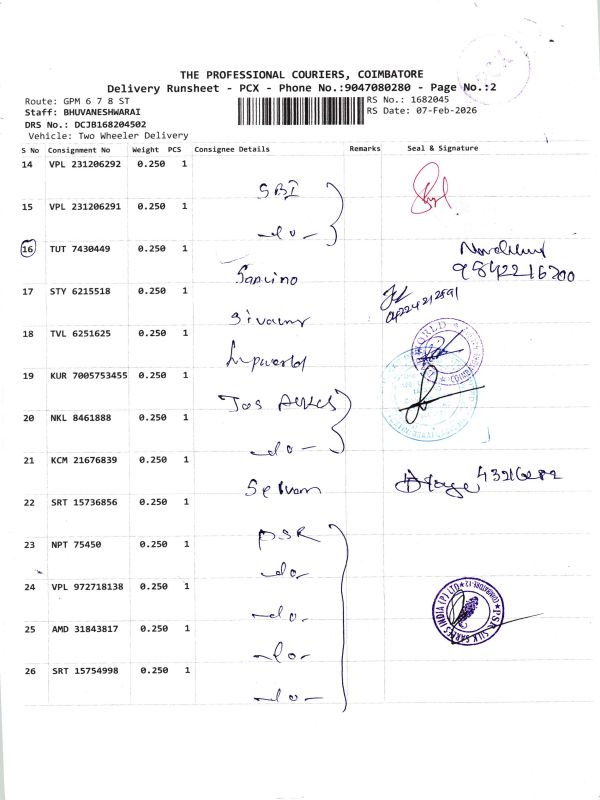 THE PROFESSIONAL COURIERS, COIMBATORE
Delivery Runsheet - PCX - Phone No.:9047080280 - Page No.:2
Route: GPM 6 7 8 ST
RS No.: 1682045
Staff: BHUVANESHWARAI
RS Date: 07-Feb-2026
DRS No.: DCJB168204502
Vehicle: Two Wheeler Delivery
S No Consignment No Weight PCS Consignee Details Remarks Seal & Signature
14 VPL 231206292 0.250 1 SBI
15 VPL 231206291 0.250 1 -do-
16 TUT 7430449 0.250 1
9842216700
17 STY 6215518 0.250 1
18 TVL 6251625 0.250 1
19 KUR 7005753455 0.250 1 Jos
20 NKL 8461888 0.250 1 -do-
21 KCM 21676839 0.250 1 Selvam
22 SRT 15736856 0.250 1 PSR
23 NPT 75450 0.250 1 -do-
24 VPL 972718138 0.250 1 -do-
P.S.R. SILK SAREES INDIA (P) LTD COIMBATORE-12
25 AMD 31843817 0.250 1 -do-
26 SRT 15754998 0.250 1 -do-